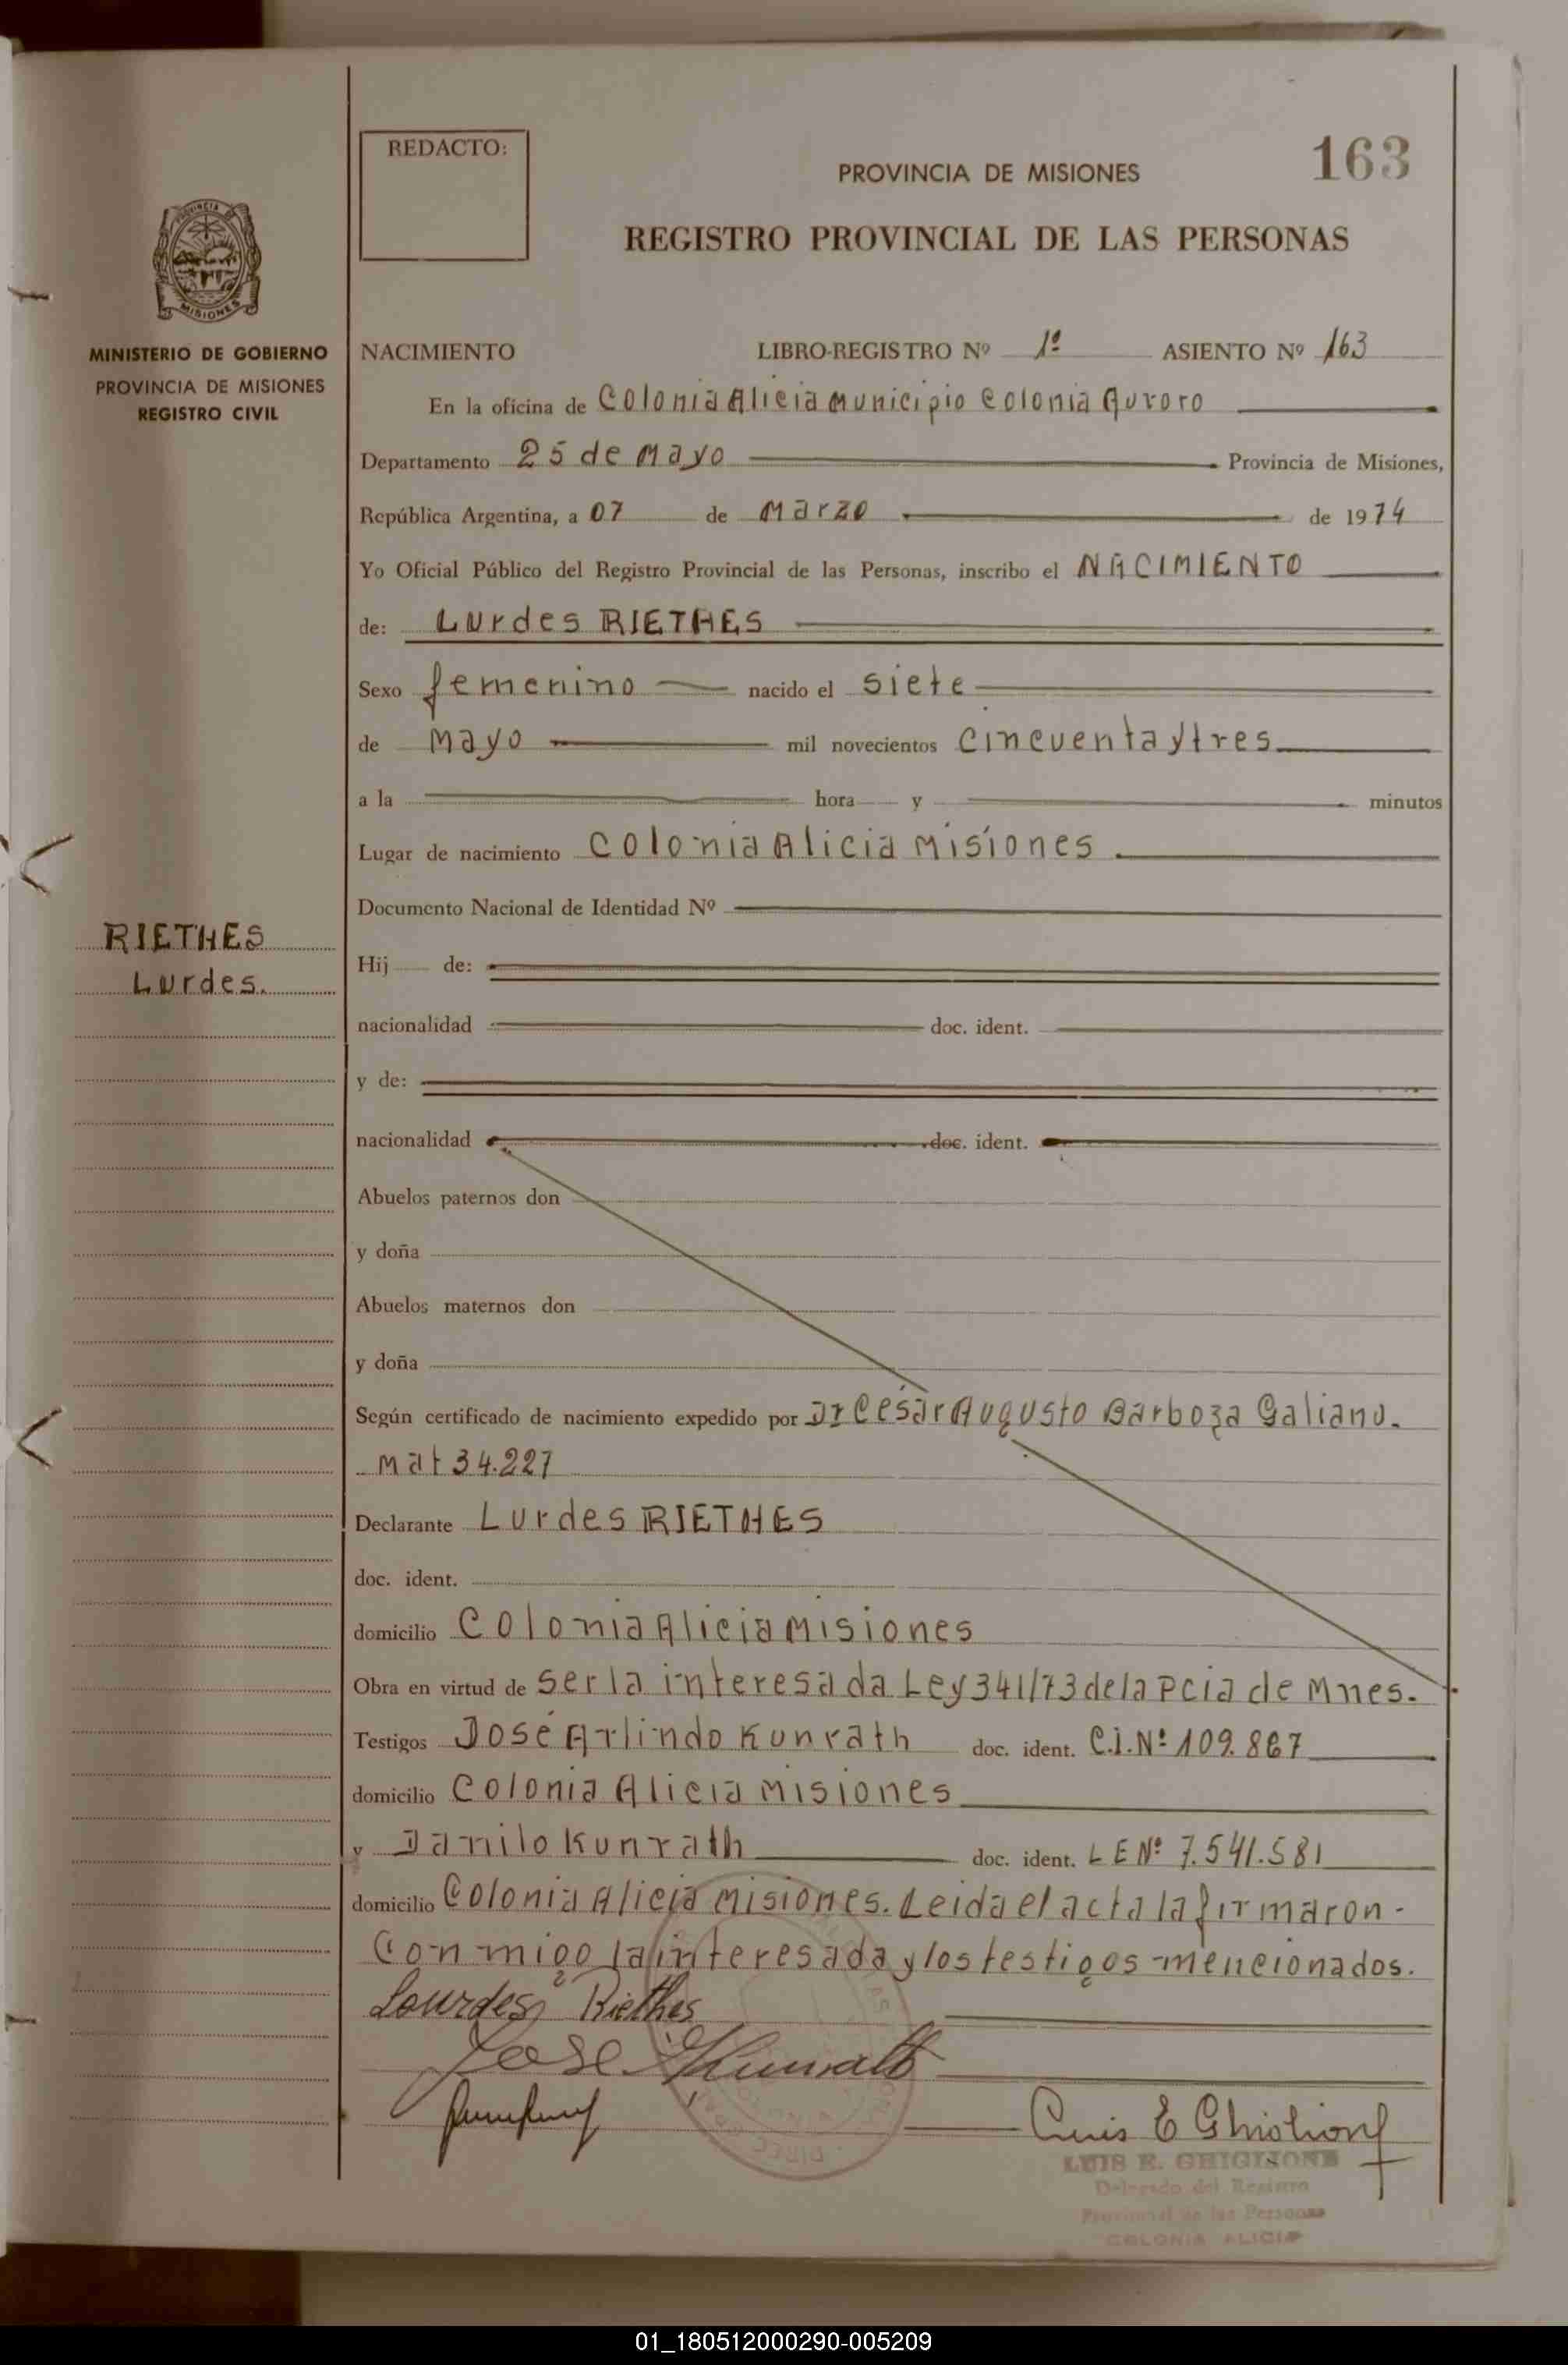 REDACTO:
163
PROVINCIA DE MISIONES
REGISTRO PROVINCIAL DE LAS PERSONAS
PROVINCIA DE
MISIONES
MINISTERIO DE GOBIERNO
PROVINCIA DE MISIONES
REGISTRO CIVIL
NACIMIENTO LIBRO-REGISTRO Nº 1º ASIENTO Nº 163
En la oficina de Colonia Alicia Municipio Colonia Auroro
Departamento 25 de Mayo Provincia de Misiones,
República Argentina, a 07 de Marzo de 1974
Yo Oficial Público del Registro Provincial de las Personas, inscribo el NACIMIENTO
de: Lurdes RIETHES
Sexo femenino nacido el siete
de Mayo mil novecientos cincuenta y tres
a la hora y minutos
Lugar de nacimiento Colonia Alicia Misiones
Documento Nacional de Identidad Nº
RIETHES
Lurdes.
Hij de:
nacionalidad doc. ident.
y de:
nacionalidad doc. ident.
Abuelos paternos don
y doña
Abuelos maternos don
y doña
Según certificado de nacimiento expedido por Dr César Augusto Barboza Galiano.
Mat 34.227
Declarante Lurdes RIETHES
doc. ident.
domicilio Colonia Alicia Misiones
Obra en virtud de ser la interesada Ley 341/73 de la Pcia de Mnes.
Testigos José Arlindo Kunrath doc. ident. C.I. Nº 109.867
domicilio Colonia Alicia Misiones
y Danilo Kunrath doc. ident. L E Nº 7.541.581
domicilio Colonia Alicia Misiones. Leida el acta la firmaron-
Conmigo la interesada y los testigos mencionados.
Lourdes Riethes
Jose A Kunrath
Luis E Ghiglione
LUIS E. GHIGLIONE
Delegado del Registro
Provincial de las Personas
COLONIA ALICIA
01_180512000290-005209